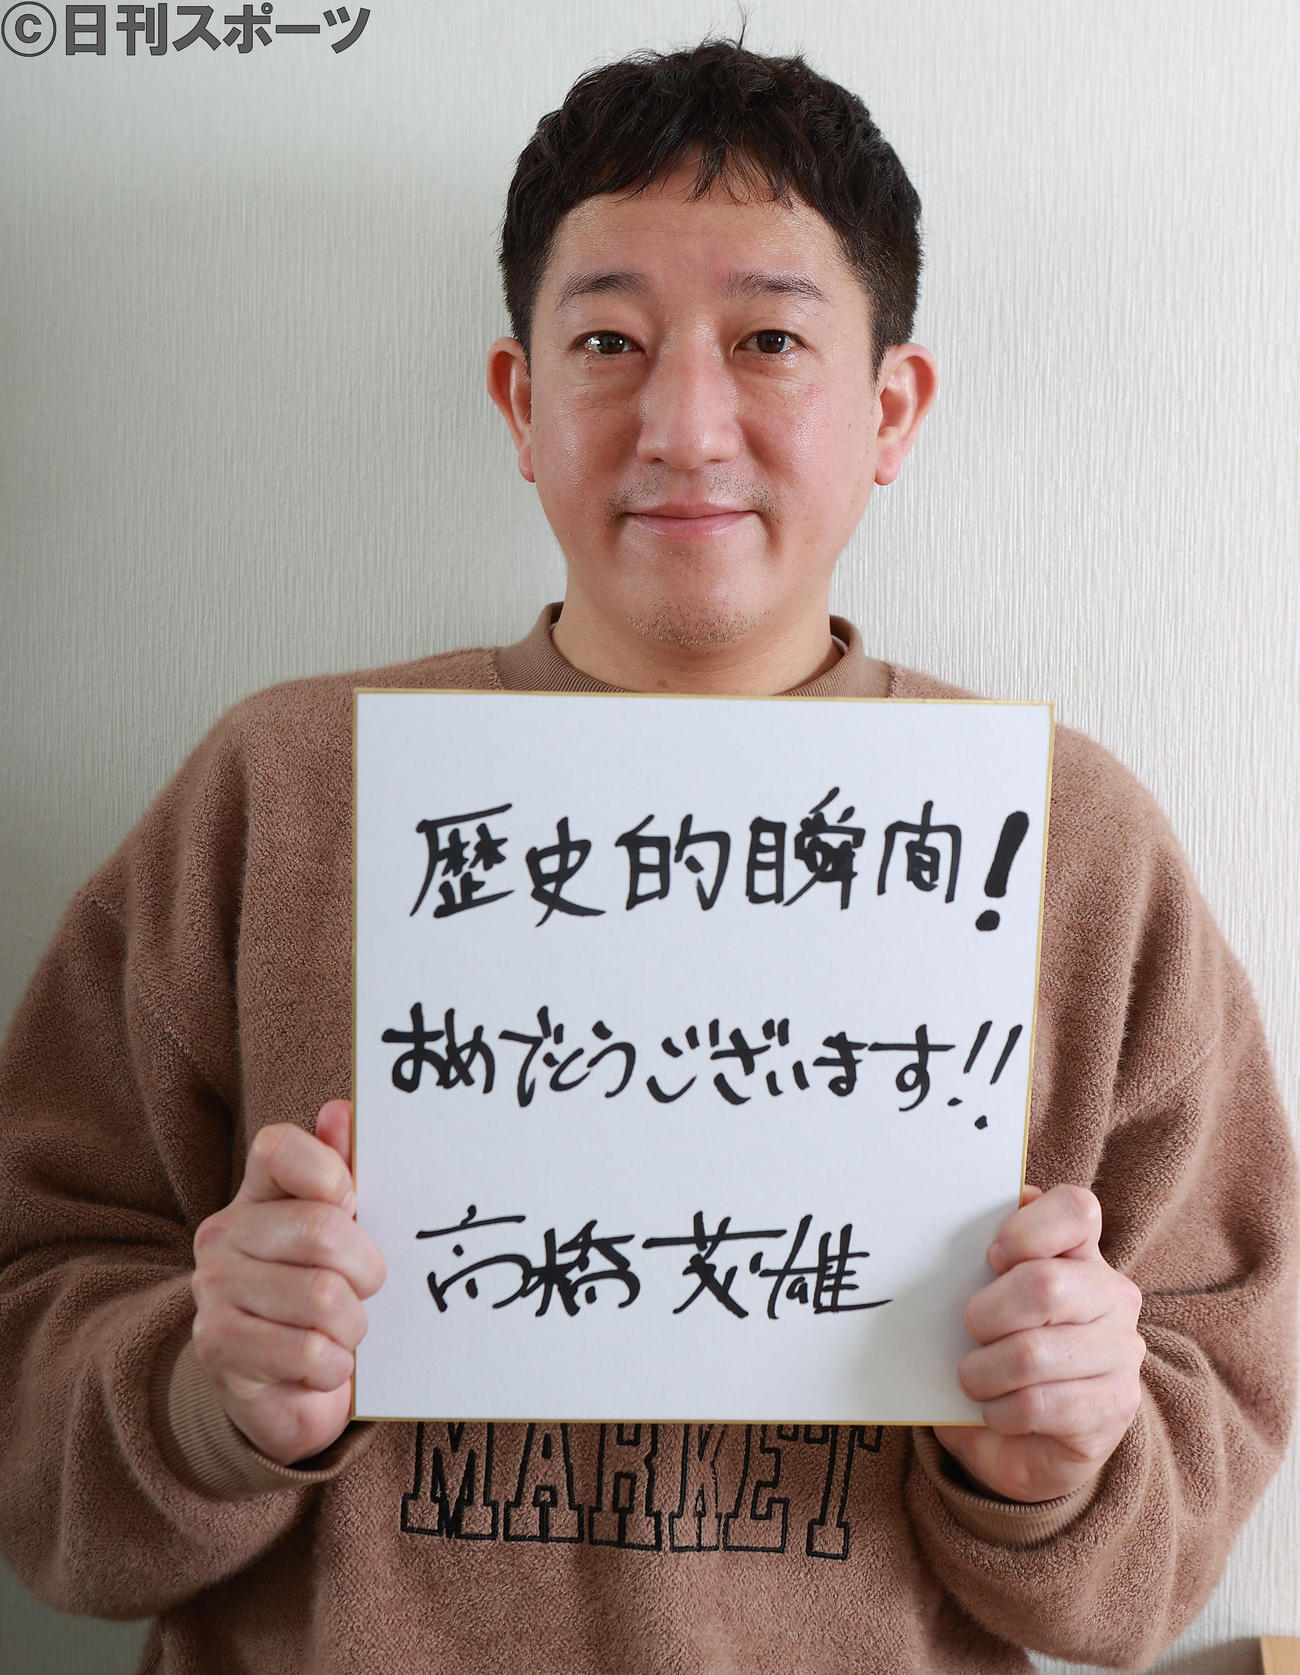 ©日刊スポーツ
歴史的瞬間!
おめでとうございます!!
高橋茂雄
MARKET